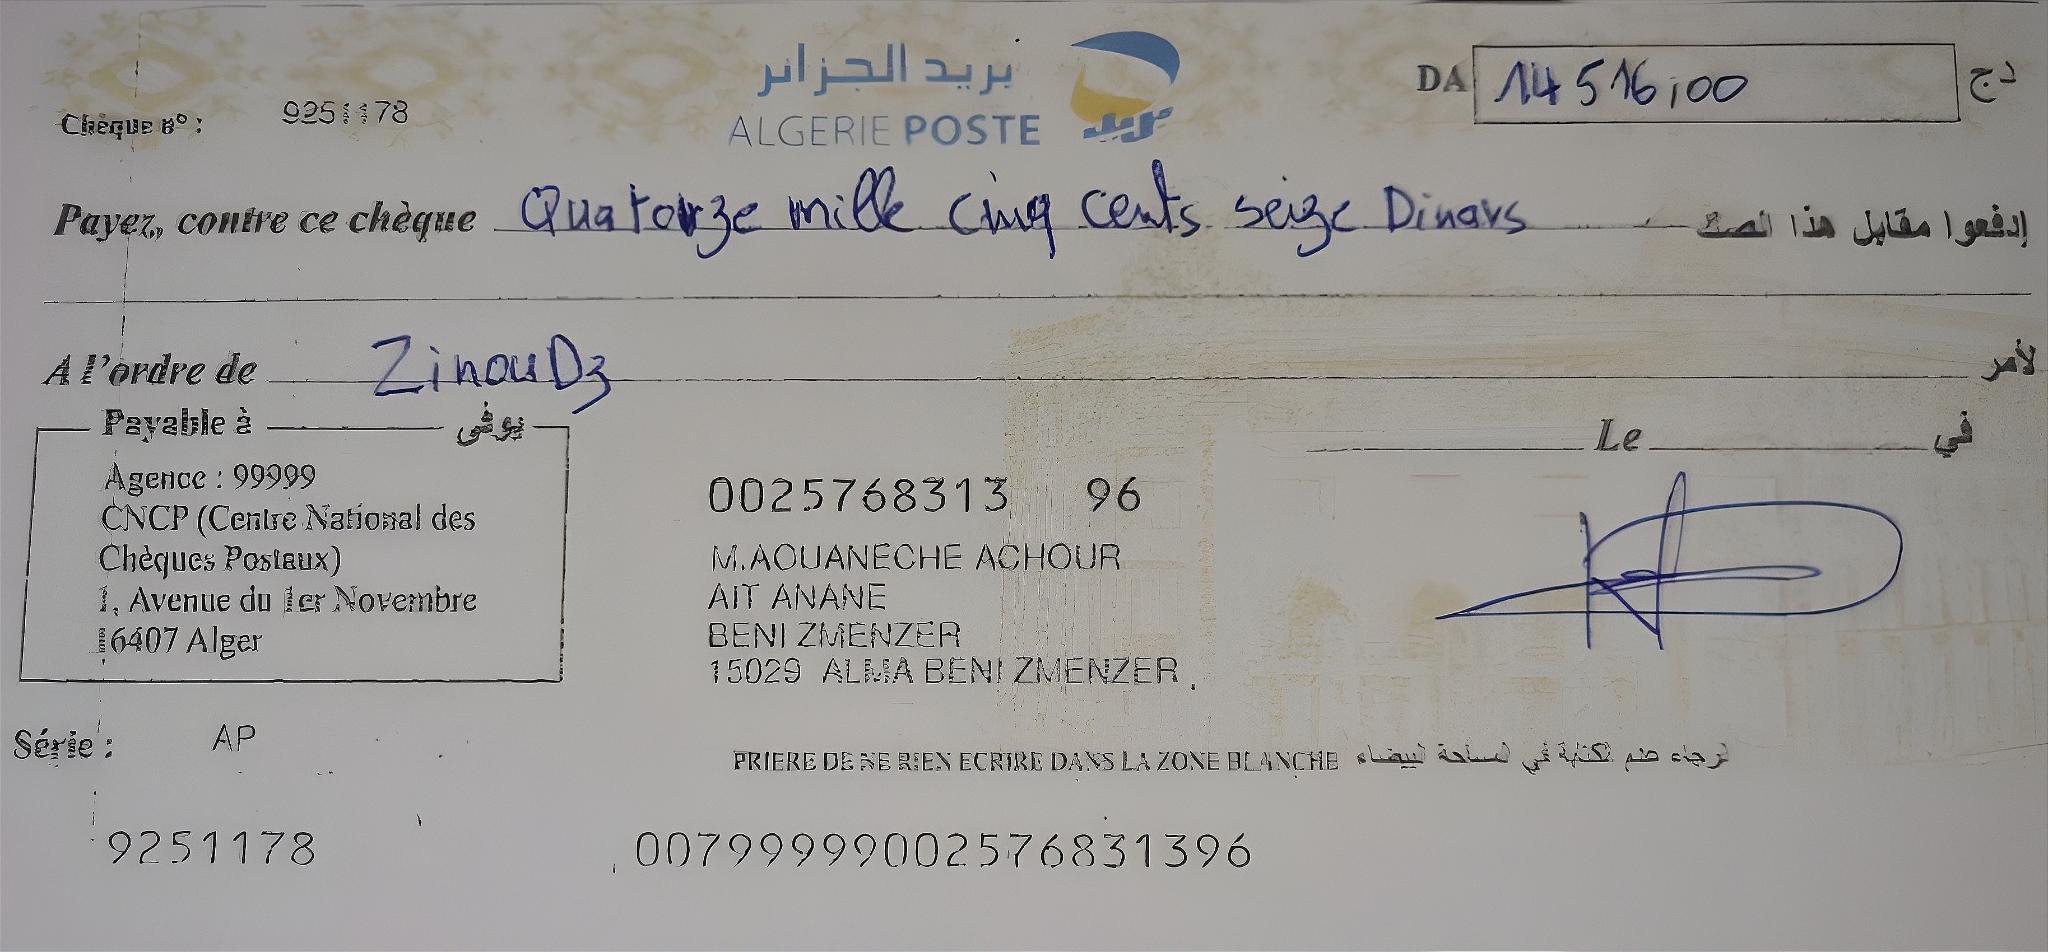 بريد الجزائر
ALGERIE POSTE
Chèque n° : 9251178
DA 14 516,00 دج
Payez, contre ce chèque Quatorze mille cinq cents seize Dinars إدفعوا مقابل هذا الصك
A l'ordre de ZinouDz لأمر
Payable à يوفى
Agence : 99999
CNCP (Centre National des
Chèques Postaux)
1, Avenue du 1er Novembre
16407 Alger
Le في
0025768313 96
M.AOUANECHE ACHOUR
AIT ANANE
BENI ZMENZER
15029 ALMA BENI ZMENZER
Série : AP
PRIERE DE NE RIEN ECRIRE DANS LA ZONE BLANCHE
9251178 00799999002576831396